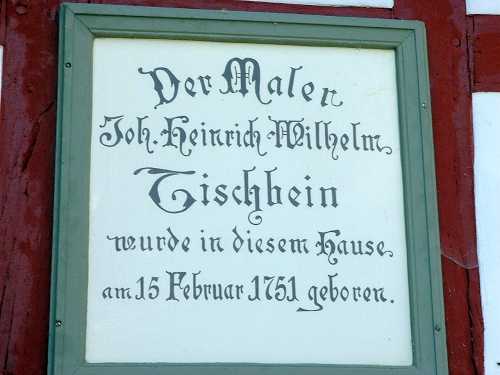 Der Maler
Joh. Heinrich Wilhelm
Tischbein
wurde in diesem Hause
am 15 Februar 1751 geboren.